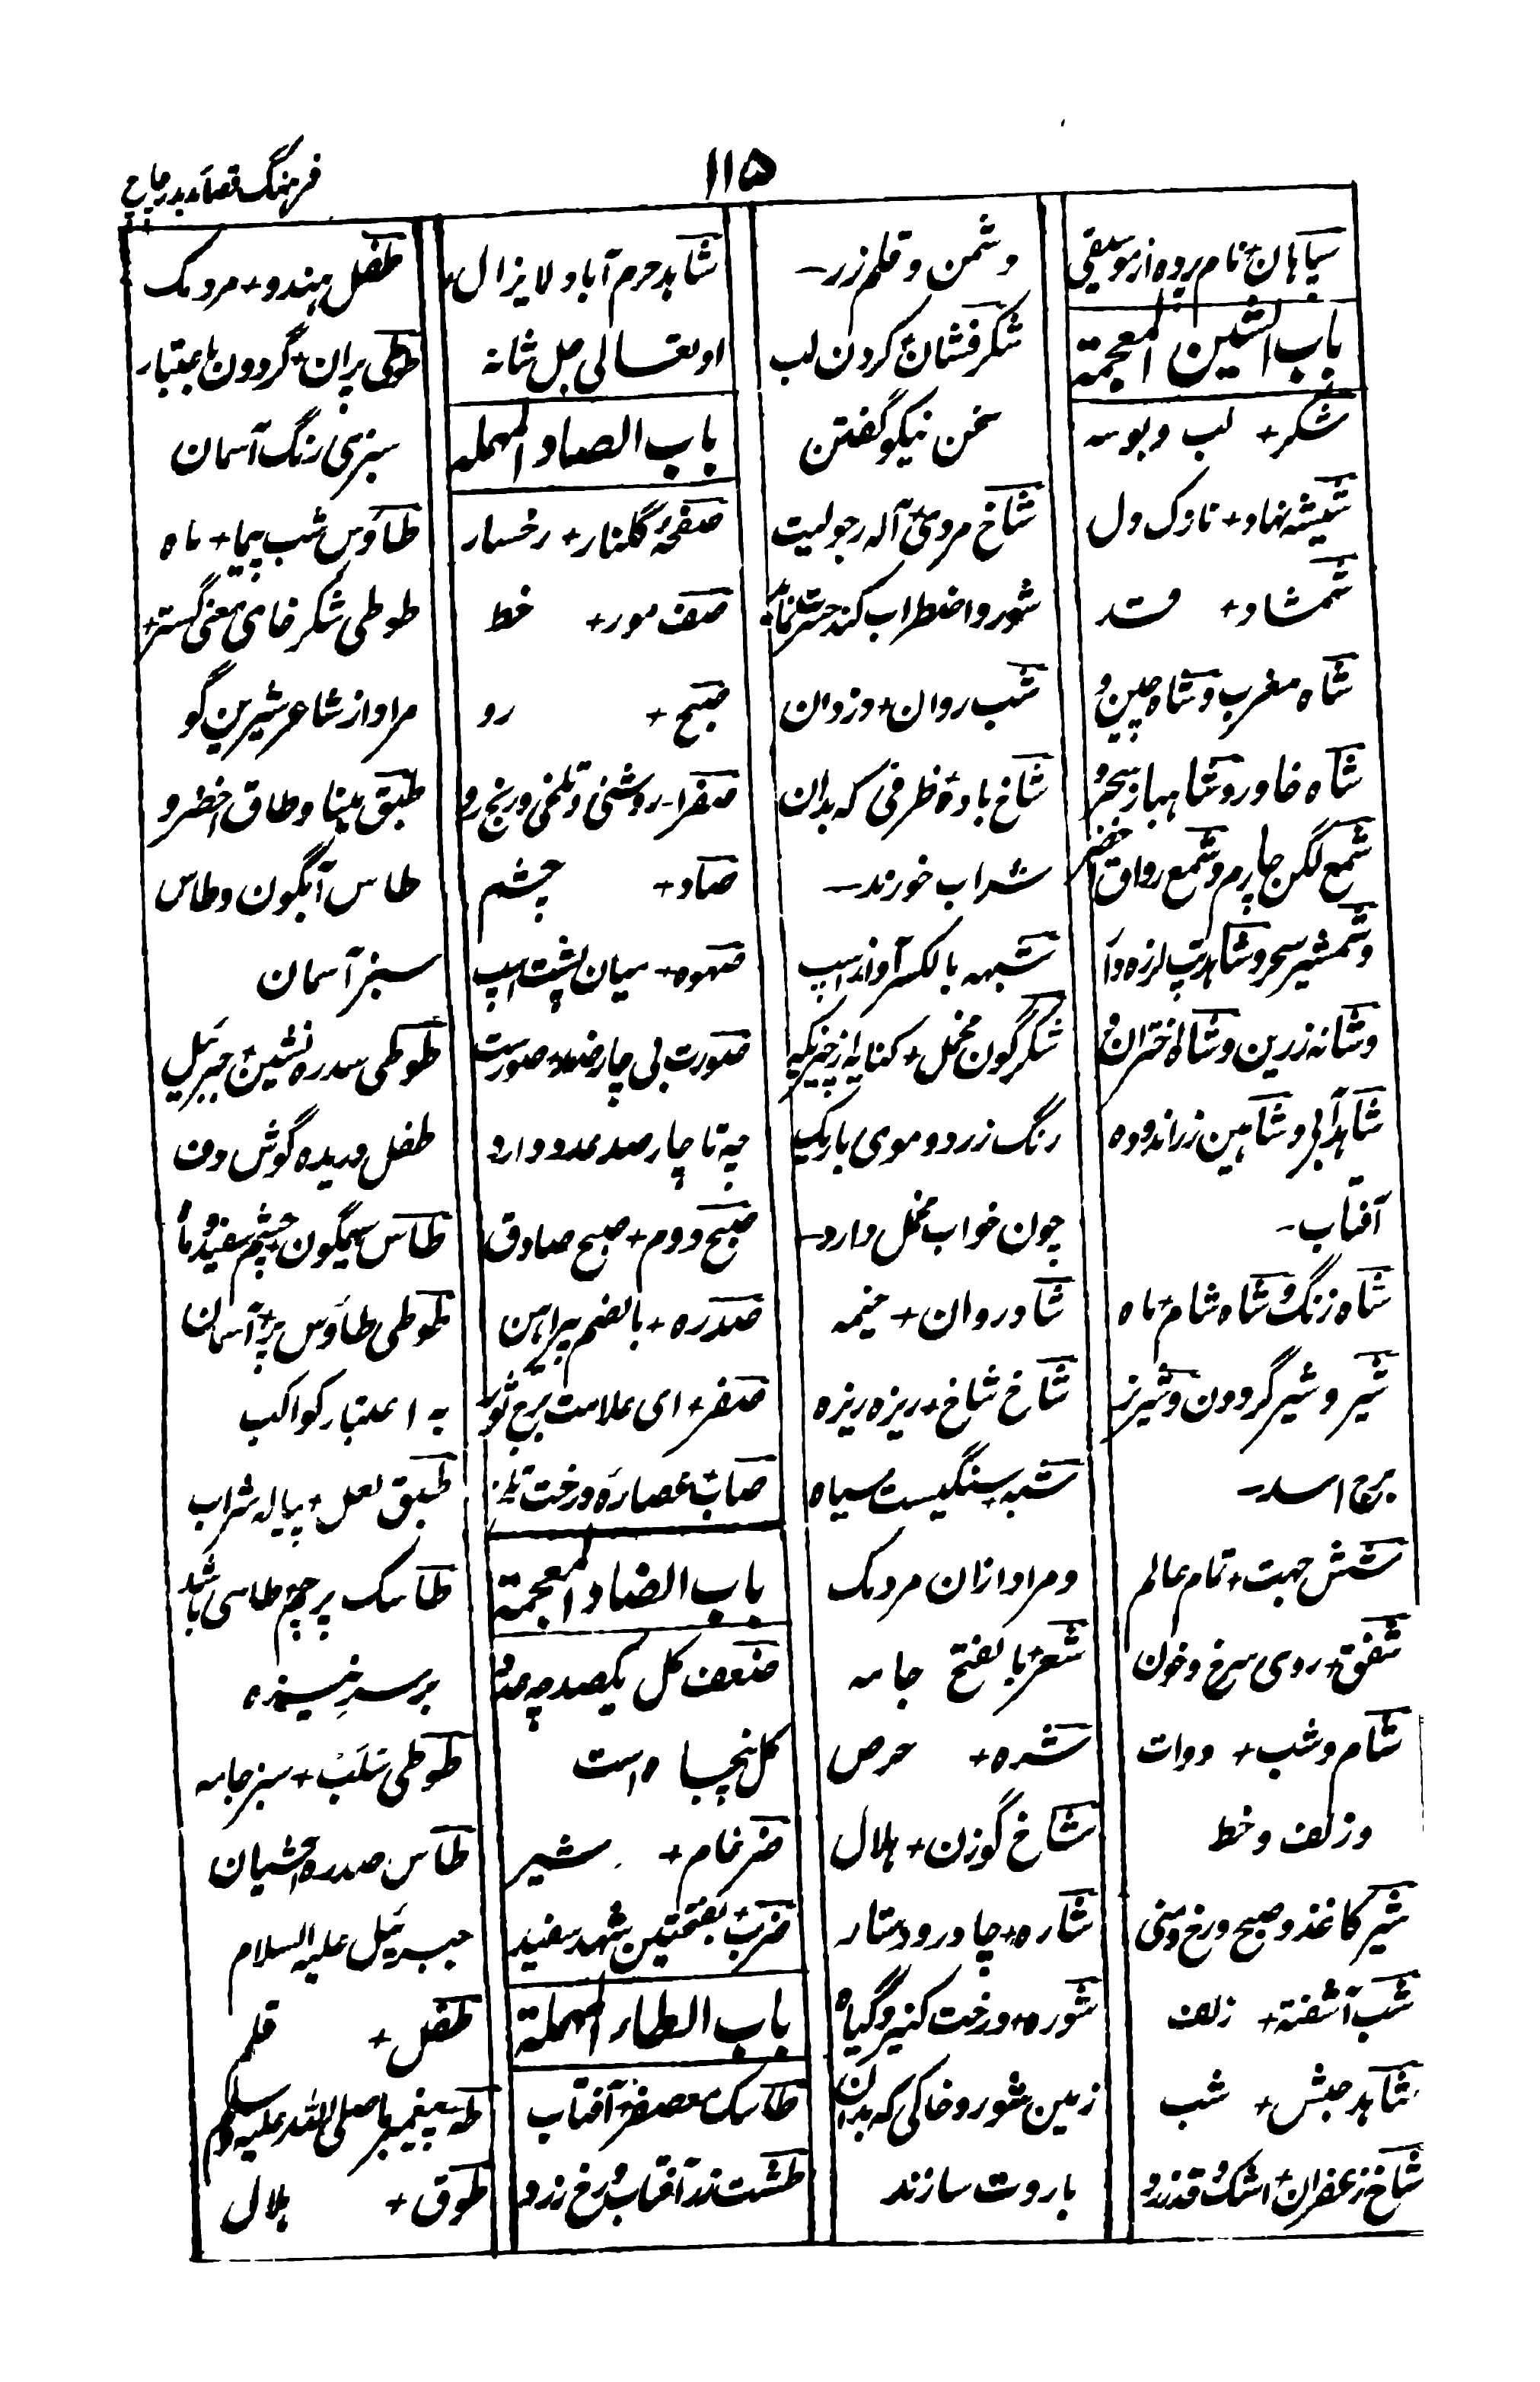 ۱۱۵
فرہنگ قصائد بدر چاچ
سپاہان+ نام پردہ از موسیقی
باب الشین المعجمة
شکر+ لب و بوسہ
شیشہ نہاد+ نازک دل
شمشاد+ قد
شاہ مغرب و شاہ چین و
شاہ خاور و شاہباز سحر و
شمع لگن چارم و شمع رواق اخضر
و شمشیر سحر و شاہد تب لرزہ دار
و شانہ زرین و شاہ اختران و
شاہد آبی و شاہین زراندودہ
آفتاب-
شاہ زنگ و شاہ شام+ ماہ
شیر و شیر گردون و شیر نر
برج اسد-
شش جہت+ تمام عالم
شفق+ روی سرخ و خون
شام و شب+ دوات
و زلف و خط
شیر کاغذ و صبح و رخ و منی
شب آشفتہ+ زلف
شاہد حبش+ شب
شاخ زعفران+ اشک و قد زرد
دشمن و قلم زر-
شکر فشان کردن لب
سخن نیکو گفتن
شاخ مردی+ آلہ رجولیت
شور و اضطراب کند
شب روان+ دزدان
شاخ بادہ+ ظرفی کہ بدان
شراب خورند-
شبہہ بالکسر آواز اسپ
شکرگون مخمل+ کنایہ از چیزیکہ
رنگ زرد و موی باریک
چون خواب مخمل دارد-
شادروان+ خیمہ
شاخ شاخ+ ریزہ ریزہ
شبہ+ سنگیست سیاہ
و مراد ازان مردمک
شعر+ بالفتح جامہ
شرہ+ حرص
شاخ گوزن+ ہلال
شارہ+ چادر و دستار
شورہ+ درخت کنیر و گیاہ
زمین شور و خاکی کہ بدان
باروت سازند
شاہد حرم آباد لایزال+
او تعالی جل شانہ
باب الصاد المہملہ
صفحۂ گلنار+ رخسار
صف مور+ خط
صبح+ رو
صفرا- روشنی و تلخی و رنج رو
صاد+ چشم
صہوہ+ میان پشت اسپ
صورت بی چار صد+ صورت
چہ تا چار صد عدد دارد
صبح دوم+ صبح صادق
صدرہ+ بالضم پیراہن
صفر+ ای علامت برج ثور
صاب+ عصارہ درخت تلخ
باب الضاد المعجمة
ضعف کل یکصد چہ ضد
کل پنجاہ است
ضرغام+ شیر
ضرب+ بفتحتین شہد سفید
باب الطاء المہملة
طاسک معصفر+ آفتاب
طشت زر+ آفتاب و رخ زرد
طفل ہندو+ مردمک
طوطی پران+ گردون باعتبار
سبزی رنگ آسمان
طاؤس شب پیما+ ماہ
طوطی شکر خای معنی گستر+
مراد از شاعر شیرین گو
طبق مینا و طاق اخضر و
طاس آبگون و طاس
سبز آسمان
طوطی سدرہ نشین+ جبرئیل
طفل دریدہ گوش دف
طاس سیمگون+ چشم سفید و ماہ
طوطی طاؤس پر+ آسمان
بہ اعتبار کواکب
طبق لعل+ پیالہ شراب
طاسک پرچم+ طاسی باشد
بر سر نیزہ
طوطی سَلَب+ سبز جامہ
طاس صدرہ آشیان
جبرئیل علیہ السلام
طفل+ قلم
طہ+ پیغمبر ما صلی اللہ علیہ وسلم
طوق+ ہلال